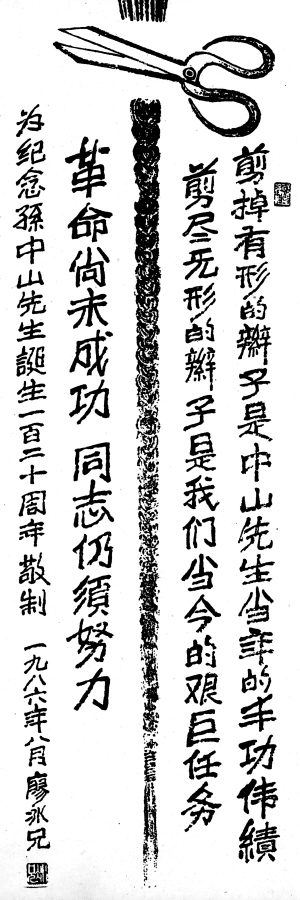 剪掉有形的辮子是中山先生当年的丰功伟績
剪尽无形的辮子是我们当今的艰巨任务
革命尚未成功 同志仍須努力
为纪念孫中山先生誕生一百二十周年敬制 一九八六年八月廖冰兄